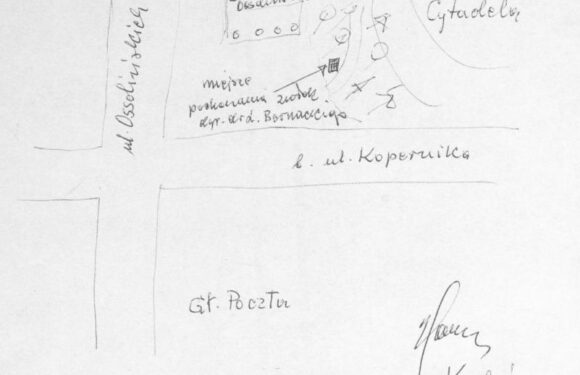 Ossolin
Cytadelą
ul. Ossolińskich
miejsce
pochowania zwłok
dyr. dr d. Bernackiego
b. ul. Kopernika
Gł. Poczta